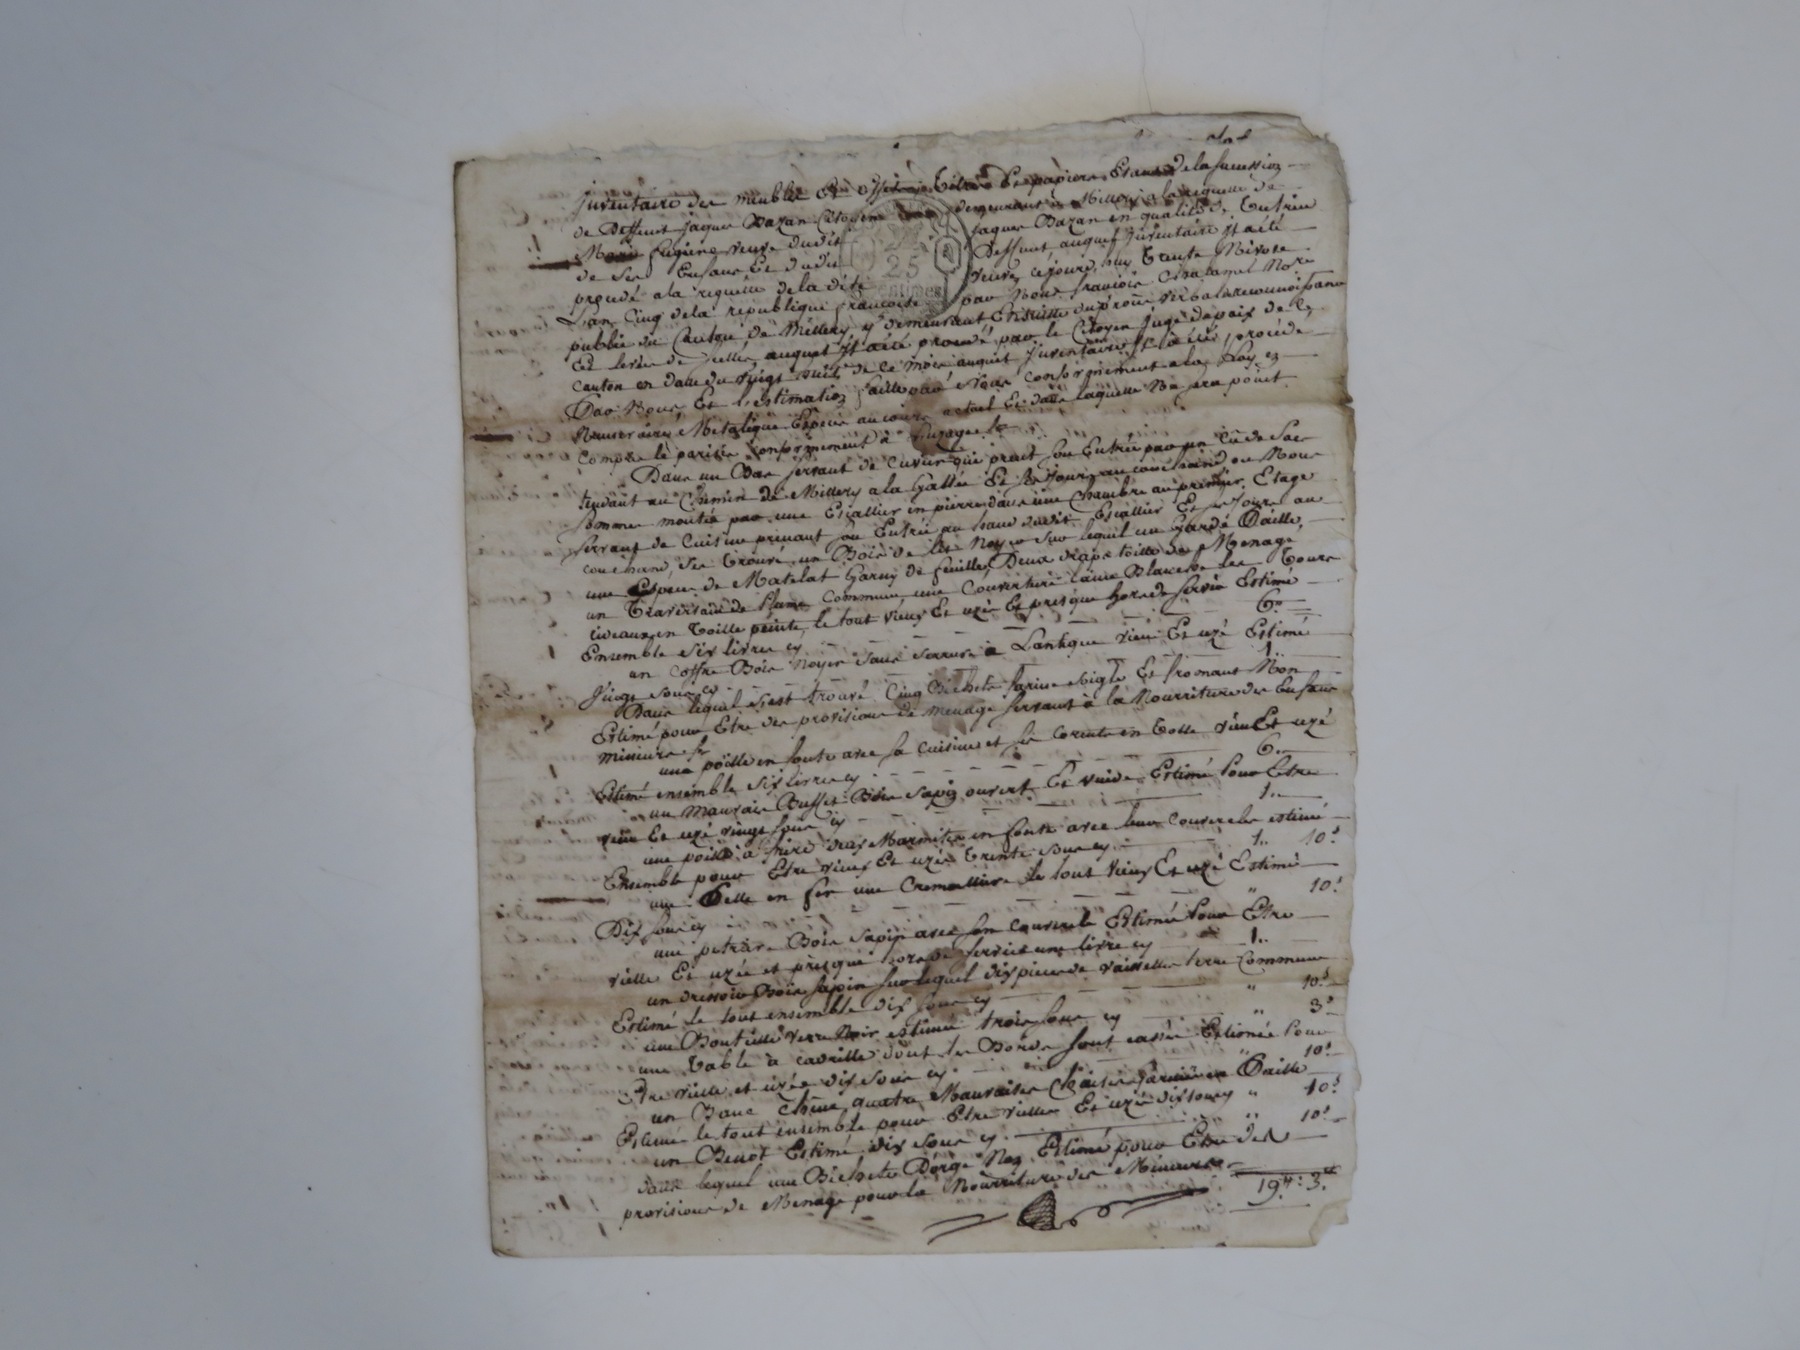 Inventaire des meubles Et Effets, titres Et papiers Etant de la succession
de Deffunt Jaque Bazan Citoyen demeurant à Millery a la requette de
Marie veuve dudit Jaque Bazan en qualité de Tutrice
de Ses Enfans Et dudit Deffunt auquel Inventaire Il a été
25
centimes
procedé a la requette de la dite veuve cejourd'huy trente Nivose
L'an Cinq de la republique francoise par Nous francois Chatamel Nore
public du Canton de Millery y demeurant Ensuitte du procès verbal de reconnoissance
Et levée de scellés auquel Il a été procedé par le Citoyen Juge de paix de ce
canton en datte du vingt huit de ce mois auquel Inventaire Il a été procedé
Par Nous Et l'estimation faitte par Nous conformement a la Loy en
Numeraire Metalique Espece au cours actuel Et dans laquelle Ne sera point
Compris le parisis conformement à l'uzage
Dans un Bas servant de Cuvier qui prend son Entrée par un Cu de Sac
tendant au Chemin de Millery a la Gallée Et Ses Jours au couchand ou Nous
sommes montés par une Escallier en pierre dans une Chambre au premier Etage
servant de Cuisine prenant son Entrée au haut dudit Escallier Et ses Jours au
couchand, S'es trouvé, un Bois de lit Noyer sur lequel un Garde Paille,
une Espece de Matelat Garny de feuilles, Deux draps toille de Menage
un Traversain de plume Commune une Couverture laine Blanche les Tours
rideaux en toille peinte, le tout vieux Et uzé Et presque hors de servir Estimé
Ensemble Six livres cy 6"
un Coffre Bois Noyer sans serrure à Lantique vieux Et uzé Estimé
Vingt sous cy 1"
Dans lequel s'est trouvé Cinq Bichets farine seigle Et fromant Non
Estimé pour Etre des provisions de menage servant à la Nourriture des Enfans
mineurs
une poille en fonte avec sa cuisine et ses cornets en tolle vieux Et uzé
Estimé ensemble six livres cy 6"
un Mauvais Buffet Bois sapin ouvert Et vuide Estimé pour Etre
vieux Et uzé vingt sous cy 1"
une poille à frire deux Marmites en fonte avec leur Couvercles estimé
Ensemble pour Etre vieux Et uzés trente sous cy 1" 10s
une Pelle en fer une Cremalliere le tout vieux Et uzé Estimé
Dix sous cy " 10s
une petriere Bois sapin avec son couvercle Estimée pour Etre
vielle Et uzée et presque hors de service une livre cy 1"
un dressoir Bois sapin sur lequel dix pieces de vaisselle terre Commune
Estimé le tout ensemble dix sous cy " 10s
une Bouteille verre Noir estimée trois sous cy " 3s
une table à cadrille dont les Bords sont cassés Estimée pour
Etre vielle et uzée dix sous cy " 10s
un Banc Chêne, quatre Mauvaises Chaises garnies en Paille
Estimé le tout ensemble pour Etre vielles Et uzées dix sous cy " 10s
un Benot Estimé dix sous cy " 10s
dans lequel une Bichete D'orge Non Estimé pour Etre des
provisions de Menage pour la Nourriture des Mineurs
19# : 3s